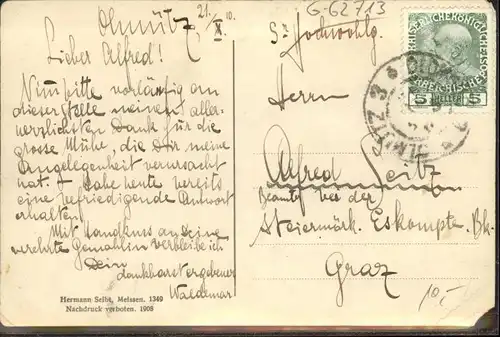 Olmütz 21./X. 10.
Lieber Alfred!
Nimm bitte vorläufig an
dieser Stelle meinen aller-
herzlichsten Dank für die
grosse Mühe, die Dir meine
Angelegenheit verursacht
hat. Ich habe heute bereits
eine befriedigende Antwort
erhalten!
Mit Handkuss an Deine
verehrte Gemahlin verbleibe ich
Dein
dankbarst ergebener
Waldemar
Hermann Seibt, Meissen. 1349
Nachdruck verboten. 1908
G-62713
Sr Hochwohlg.
Herrn
Alfred Seitz
Beamter der
Steiermärk. Eskompte Bk.
Graz
10,-
5 HELLER 5
OLMÜTZ 3